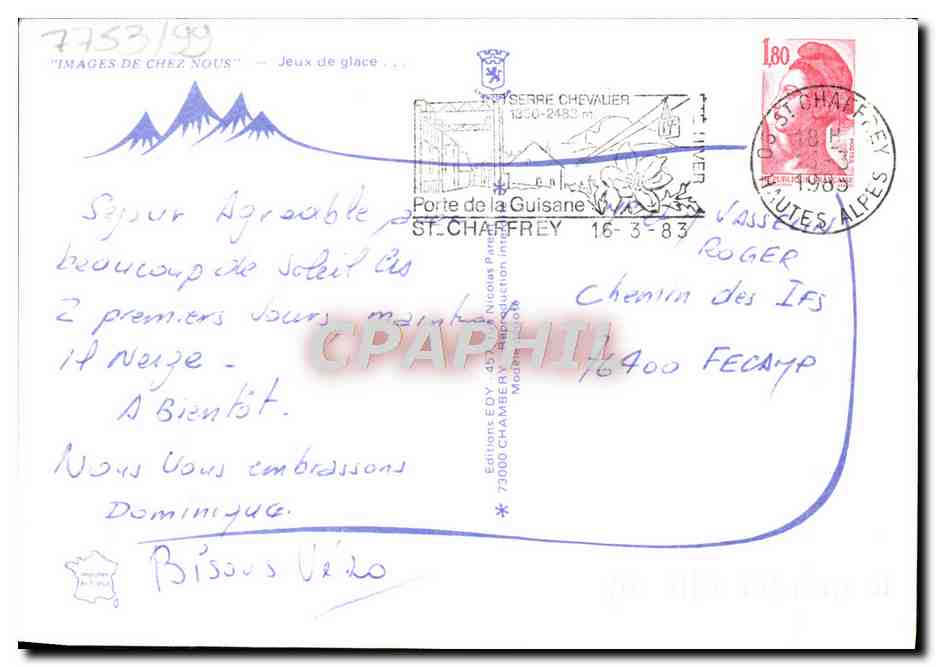 7753/99
"IMAGES DE CHEZ NOUS" — Jeux de glace...
SERRE CHEVALIER
1350-2483 m
ETE HIVER
Porte de la Guisane
ST CHAFFREY 16-3-83
1,80
05 ST CHAFFREY
18 H
1983
HAUTES ALPES
Sejour Agreable avec
beaucoup de Soleil les
2 premiers Jours, maintenant
il Neige -
A Bientôt.
Nous Vous embrassons
Dominique.
Bisous Véro
VASSELIN
ROGER
Chemin des Ifs
76400 FECAMP
Editions EDY - 457, Nicolas Parent
73000 CHAMBERY - Reproduction inter
Modèle
CPAPHIL